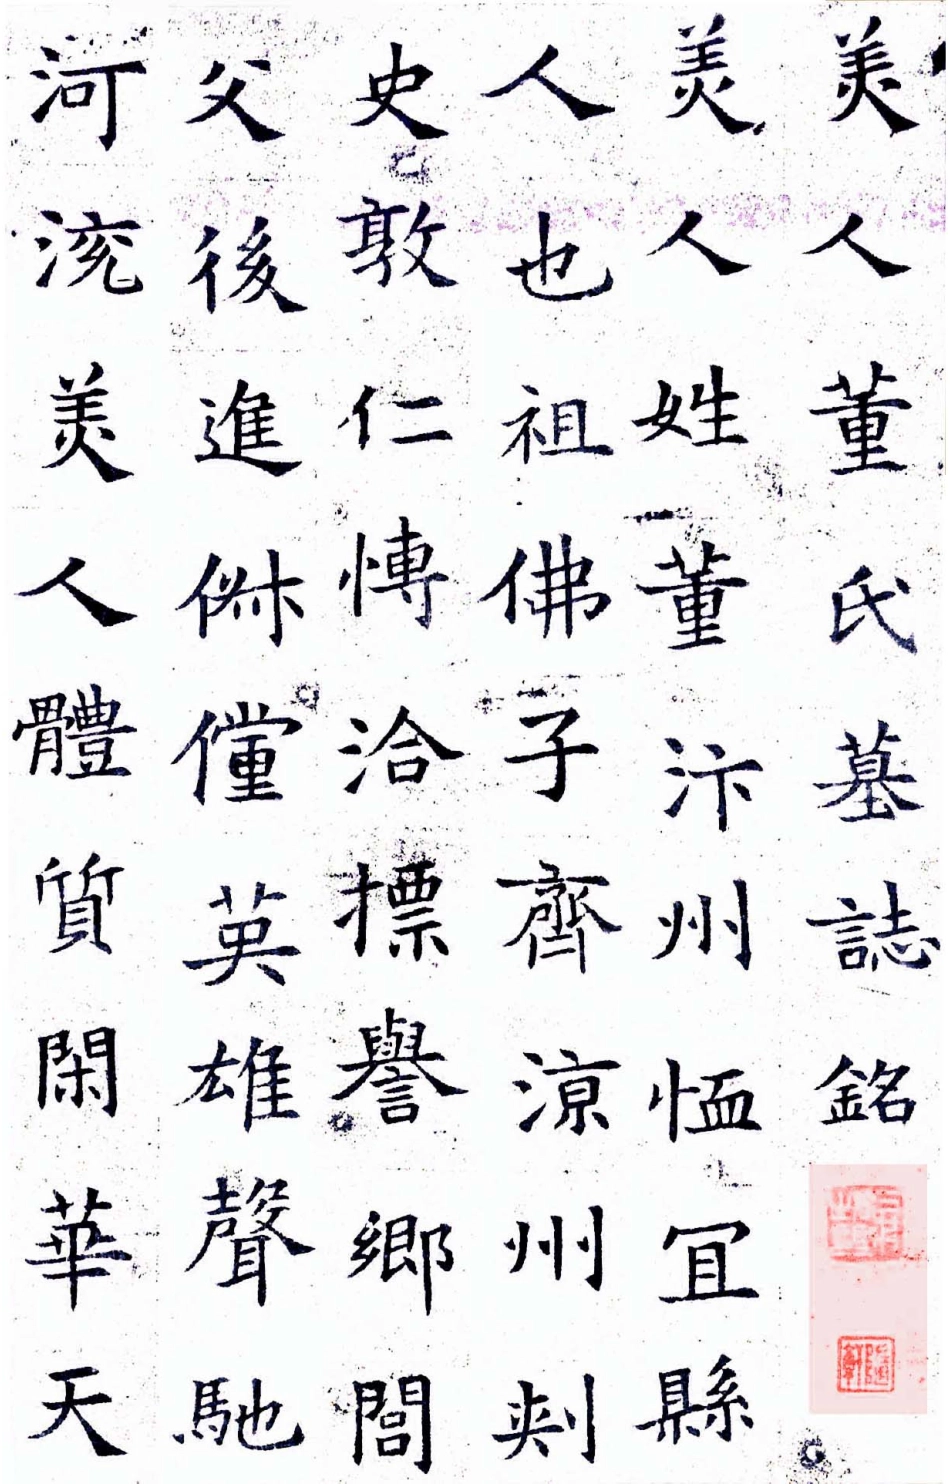 美人董氏墓誌銘
美人姓董汴州恤冝縣
人也祖佛子齊涼州刾
史敦仁慱洽摽譽鄉閭
父後進俶儻英雄聲馳
河沇美人體質閑華天